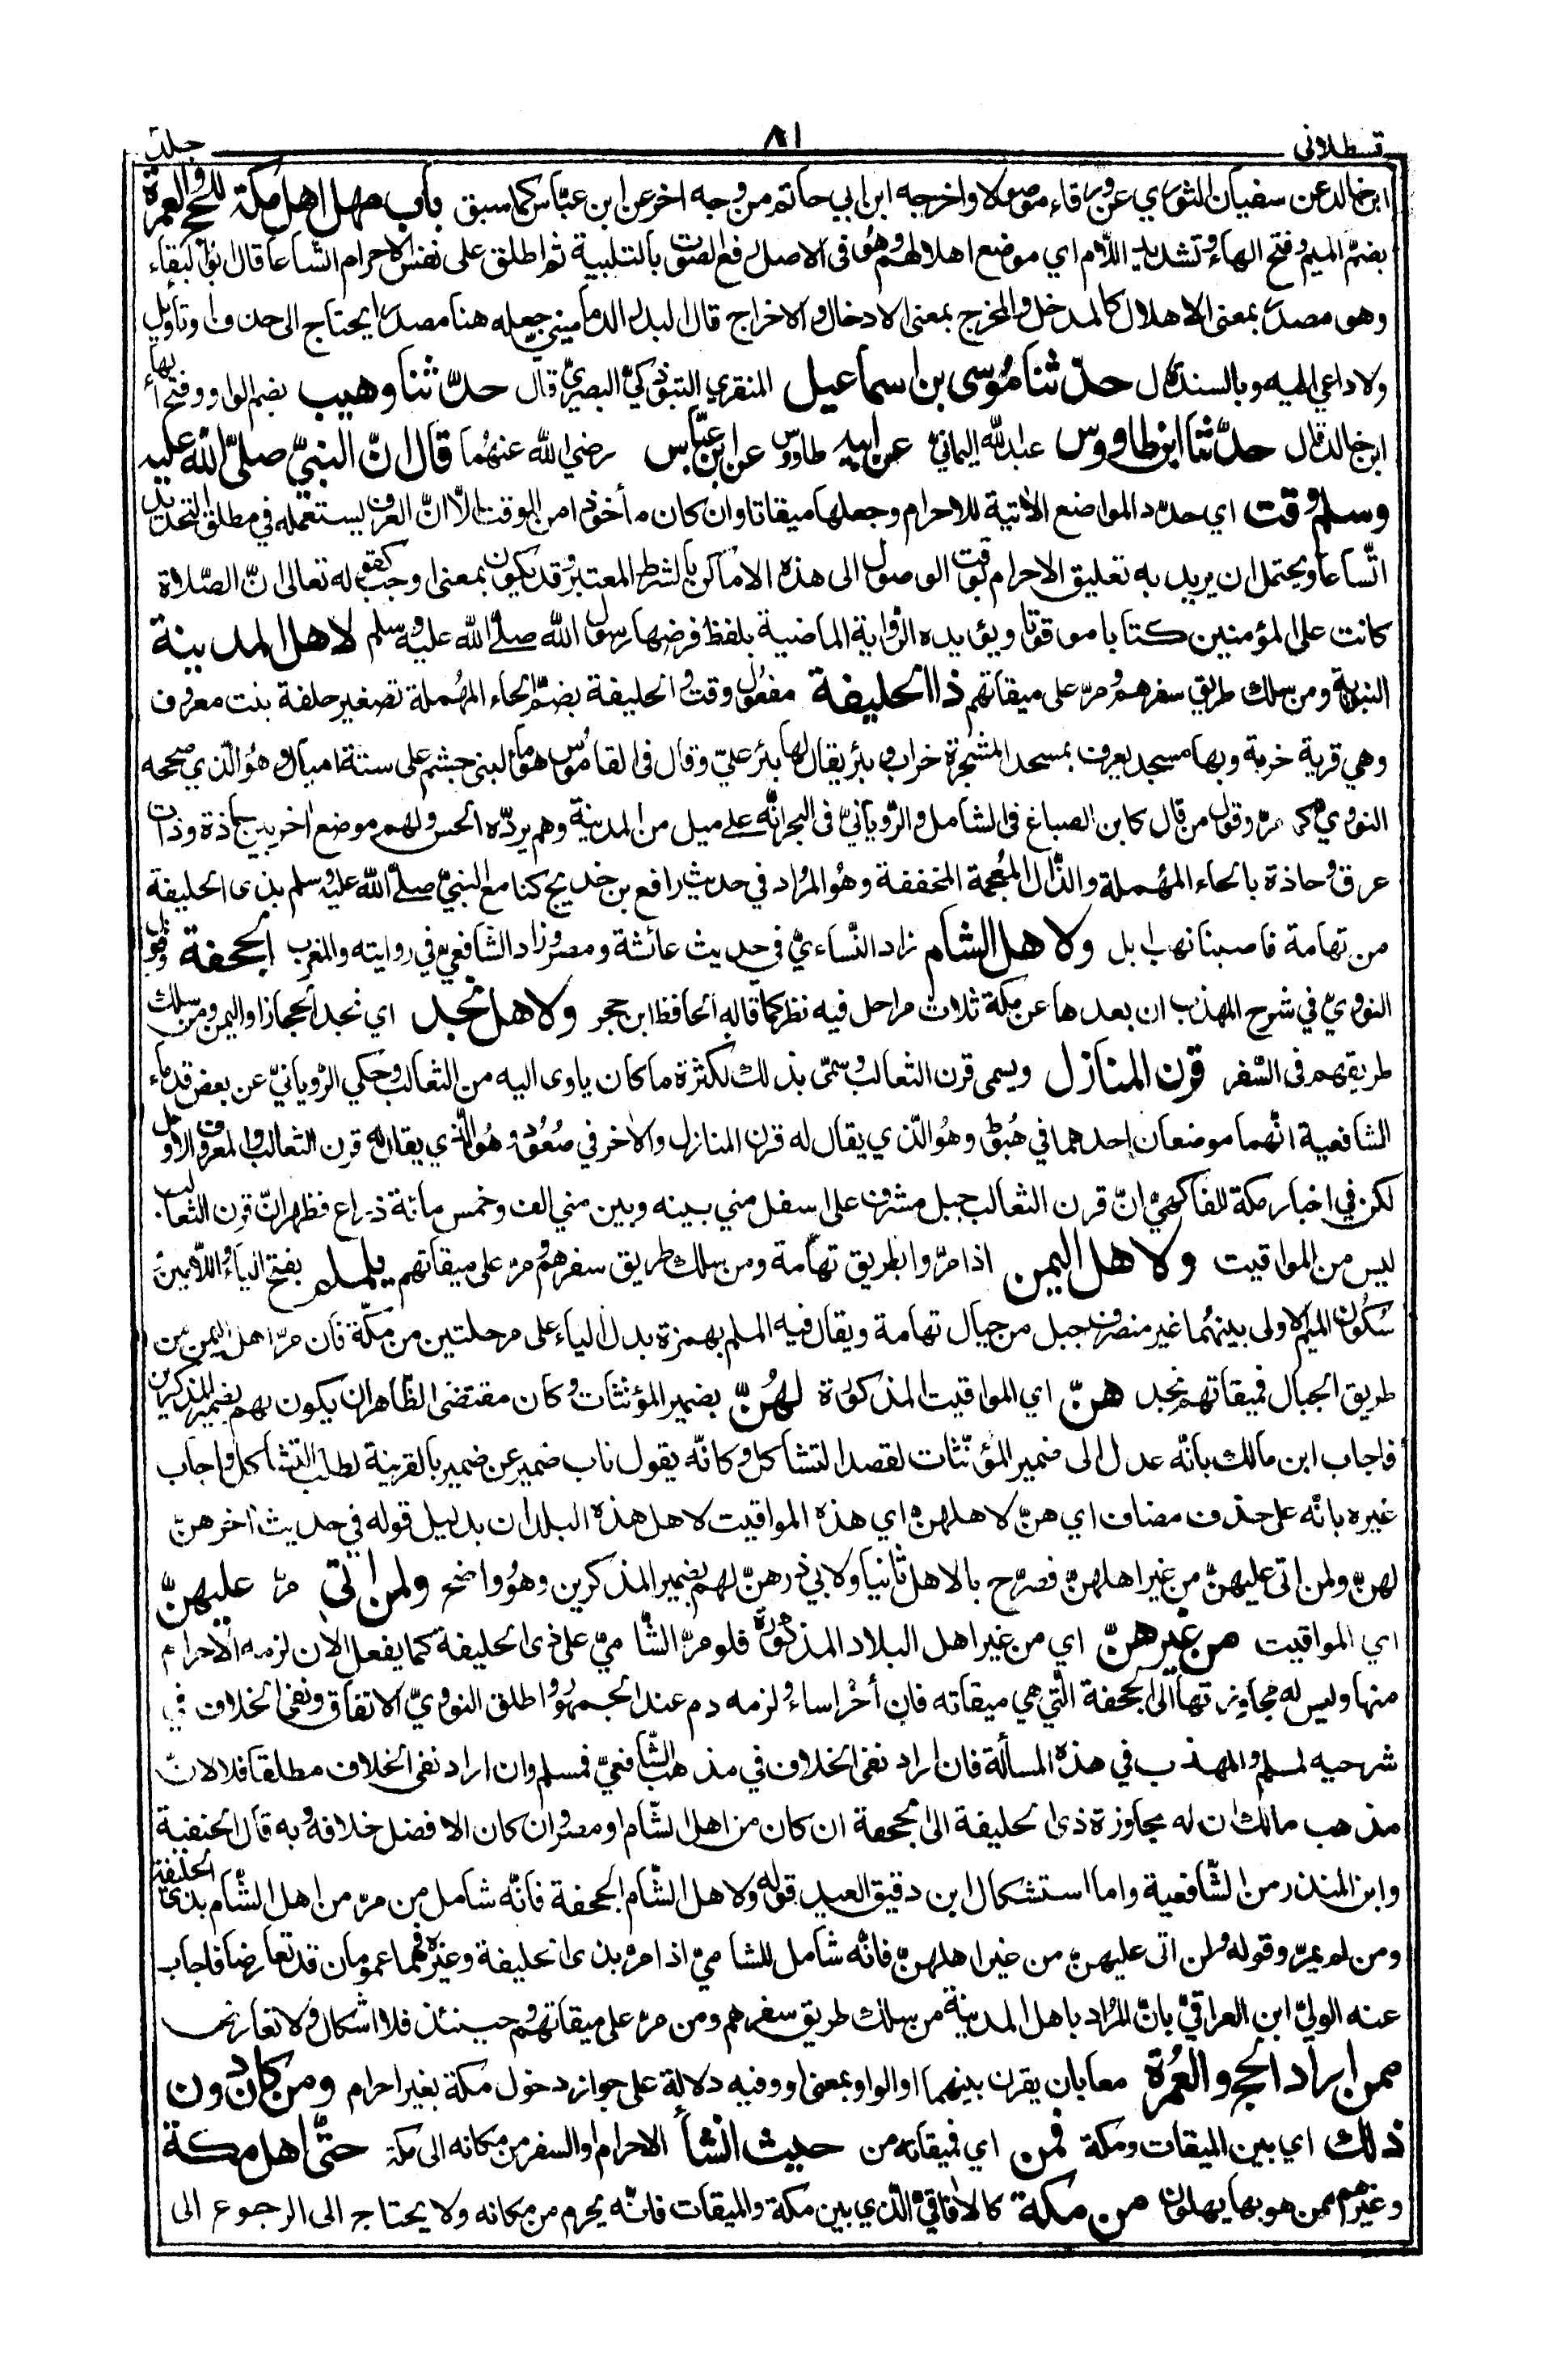 قسطلاني
٨١
جلد
ابن خالد عن سفيان الثوري عن ورقاء موصولا واخرجه ابن ابي حاتم من وجه اخر عن ابن عبّاس كما سبق باب مهل اهل مكة للحج والعمرة
بضمّ الميم وفتح الهاء وتشديد اللام اي موضع اهلالهم وهو فى الاصل رفع الصوت بالتلبية ثم اطلق على نفس الاحرام اتّساعا قال ابو البقاء
وهو مصدر بمعنى الاهلال كالمدخل والمخرج بمعنى الادخال والاخراج قال البدر الدماميني جعله هنا مصدرا يحتاج الى حذف وتأويل
ولا داعي اليه وبالسند قال حدّثنا موسى بن اسماعيل المنقري التبوذكيّ البصريّ قال حدّثنا وهيب بضم الواو وفتح الهاء
ابن خالد قال حدّثنا ابن طاووس عبد الله اليمانيّ عن ابيه طاووس عن ابن عبّاس رضي الله عنهما قال انّ النبيّ صلّى الله عليه
وسلم وقت اي حدّد المواضع الآتية للاحرام وجعلها ميقاتا وان كان مأخوذا من الوقت الّا انّ العرف يستعمله في مطلق التحديد
اتّساعا ويحتمل ان يريد به تعليق الاحرام بوقت الوصول الى هذه الاماكن بالشرط المعتبر وقد يكون بمعنى اوجب كقوله تعالى انّ الصّلاة
كانت على المؤمنين كتابا موقوتا ويؤيده الرّواية الماضية بلفظ فرضها رسول الله صلّى الله عليه وسلم لاهل المدينة
النبوية ومن سلك طريق سفرهم ومرّ على ميقاتهم ذا الحليفة مفعول وقت والحليفة بضمّ الحاء المهملة تصغير حلفة بنت معروف
وهي قرية خربة وبها مسجد يعرف بمسجد الشجرة خراب وبئر يقال لها بئر عليّ وقال فى القاموس هو ماء لبنى جشم على ستة اميال وهو الّذي صححه
النووي وقول من قال كابن الصباغ فى الشامل والرّويانيّ فى البحر انّه على ميل من المدينة وهم يردّه الحس ولهم موضع اخر بين حاذة وذات
عرق وحاذة بالحاء المهملة والذّال المعجمة المخففة وهو المراد في حديث رافع بن خديج كنا مع النبيّ صلّى الله عليه وسلم بذى الحليفة
من تهامة فاصبنا نهب ابل ولاهل الشام زاد النّساءيّ في حديث عائشة ومصر وزاد الشافعيّ في روايته والمغرب الجحفة وقول
النوويّ في شرح المهذب ان بعدها عن مكة ثلاث مراحل فيه نظر كما قاله الحافظ ابن حجر ولاهل نجد اي نجد الحجاز او اليمن ومن سلك
طريقهم فى السّفر قرن المنازل ويسمى قرن الثعالب وسمّى بذلك لكثرة ما كان ياوى اليه من الثعالب وحكي الرّويانيّ عن بعض قدماء
الشافعية انّهما موضعان احدهما في هُبوط وهو الّذي يقال له قرن المنازل والآخر في صُعُود وهو الّذي يقال له قرن الثعالب والمعروف الاوّل
لكن في اخبار مكة للفاكهيّ انّ قرن الثعالب جبل مشرف على اسفل منى بينه وبين منى الف وخمس مائة ذراع فظهر انّ قرن الثعالب
ليس من المواقيت ولاهل اليمن اذا مرّوا بطريق تهامة ومن سلك طريق سفرهم ومرّ على ميقاتهم يلملم بفتح الياء واللّامين
سكون الميم الاولى بينهما غير منصرف جبل من جبال تهامة ويقال فيه الملم بهمزة بدل الياء على مرحلتين من مكّة فان مرّ اهل اليمن من
طريق الجبال فميقاتهم نجد هنّ اي المواقيت المذكورة لهُنّ بضمير المؤنثات وكان مقتضى الظّاهر ان يكون لهم بضمير المذكرين
فاجاب ابن مالك بانّه عدل الى ضمير المؤنّثات لقصد التشاكل وكانّه يقول ناب ضمير عن ضمير بالقرينة لطلب التّشاكل واجاب
غيره بانّه على حذف مضاف اي هنّ لاهلهنّ اي هذه المواقيت لاهل هذه البلدان بدليل قوله في حديث اخر هنّ
لهنّ ولمن اتى عليهنّ من غير اهلهنّ فصرّح بالاهل ثانيا ولابي ذر هنّ لهم بضمير المذكرين وهو واضح ولمن اتى مرّ عليهنّ
اي المواقيت من غيرهنّ اي من غير اهل البلاد المذكورة فلو مرّ الشّاميّ على ذى الحليفة كما يفعل الان لزمه الاحرام
منها وليس له مجاوزتها الى الجحفة الّتي هي ميقاته فان أخّر اساء ولزمه دم عند الجمهور واطلق النوويّ الاتفاق ونفى الخلاف في
شرحيه لمسلم والمهذب في هذه المسألة فان اراد نفى الخلاف في مذهب الشّافعيّ فمسلم وان اراد نفى الخلاف مطلقا فلا لانّ
مذهب مالك ان له مجاوزة ذى الحليفة الى الجحفة ان كان من اهل الشّام او مصر وان كان الافضل خلافه وبه قال الحنفية
وابن المنذر من الشّافعية واما استشكال ابن دقيق العيد قوله ولاهل الشّام الجحفة فانّه شامل من مرّ من اهل الشّام بذى الحليفة
ومن لم يمرّ وقوله ولمن اتى عليهنّ من غير اهلهنّ فانّه شامل للشاميّ اذا مرّ بذى الحليفة وغيره فهما عمومان قد تعارضا فاجاب
عنه الوليّ ابن العراقيّ بانّ المراد باهل المدينة من سلك طريق سفرهم ومن مرّ على ميقاتهم وحينئذ فلا اشكال ولا تعارض
ممن اراد الحج والعُمرة معا بان يقرن بينهما او الواو بمعنى او وفيه دلالة على جواز دخول مكة بغير احرام ومن كان دون
ذلك اي بين الميقات ومكة فمن اي فميقاته من حيث انشأ الاحرام او السفر من مكانه الى مكة حتّى اهل مكة
وغيرهم ممن هو بها يهلون من مكة كالآفاقيّ الّذي بين مكة والميقات فانّه يحرم من مكانه ولا يحتاج الى الرجوع الى